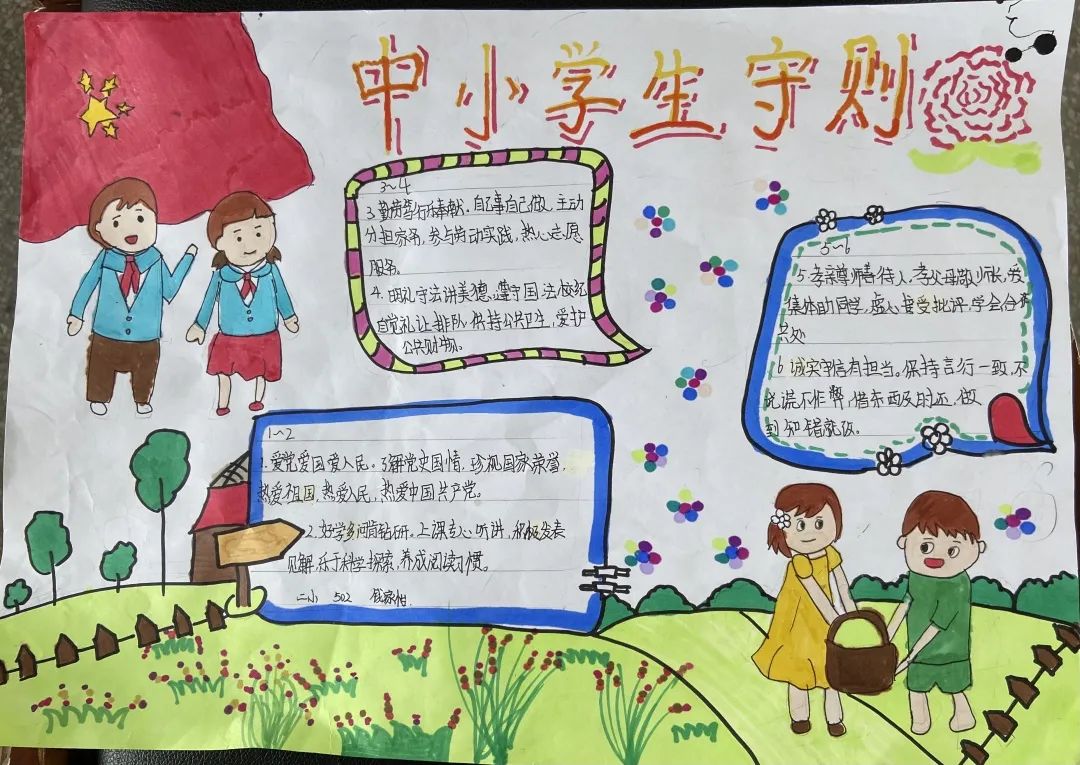 中小学生守则
3~4
3.勤劳笃行乐奉献。自己事自己做,主动
分担家务,参与劳动实践,热心志愿
服务。
4.明礼守法讲美德,遵守国法校纪
自觉礼让排队,保持公共卫生,爱护
公共财物。
5~6
5.孝亲尊师善待人,孝父母敬师长,爱
集体助同学,虚心接受批评,学会合作
共处
6诚实守信有担当。保持言行一致,不
说谎不作弊,借东西及时还,做
到知错就改。
1~2
1.爱党爱国爱人民。了解党史国情,珍视国家荣誉,
热爱祖国,热爱人民,热爱中国共产党。
2.好学多问肯钻研。上课专心听讲,积极发表
见解,乐于科学探索,养成阅读习惯。
二小 502